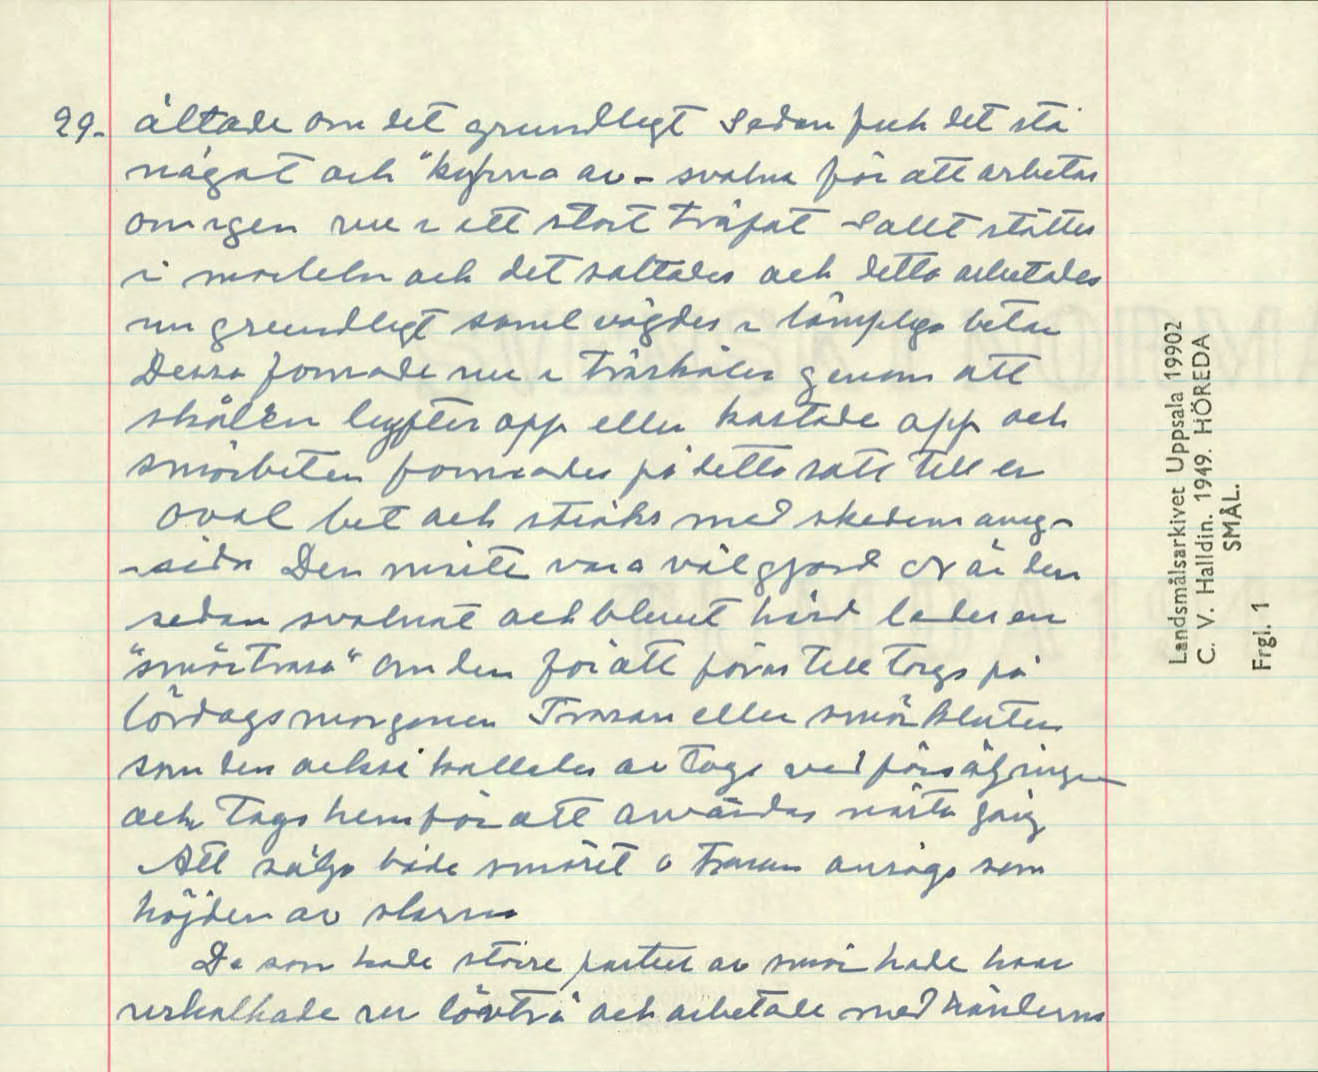 29.
ältade om det grundligt Sedan fick det stå
något och "kylna av - svalna för att arbetas
om igen nu i ett stort träfat Saltet stöttes
i morteln och det saltades och detta arbetades
nu grundligt samt vägdes i lämpliga bitar
Dessa formade nu i träskålar genom att
skålen lyftes opp eller kastade opp och
smörbiten formades på detta sätt till en
oval bit och ströks med skedens aveg-
sida Den måste vara väl gjord När den
sedan svalnat och blivit hård lades en
"smörtrasa" om den för att föras till torgs på
lördagsmorgonen Trasan eller smörkluten
som den också kallades av togs vid försäljningen
och togs hem för att användas nästa gång
Att sälja både smöret o trasan ansågs som
höjden av slarv
De som hade större partier av smör hade kar
urholkade ur lövträ och arbetade med händerna
Landsmålsarkivet Uppsala 19902
C. V. Halldin. 1949. HÖREDA
SMÅL.
Frgl. 1